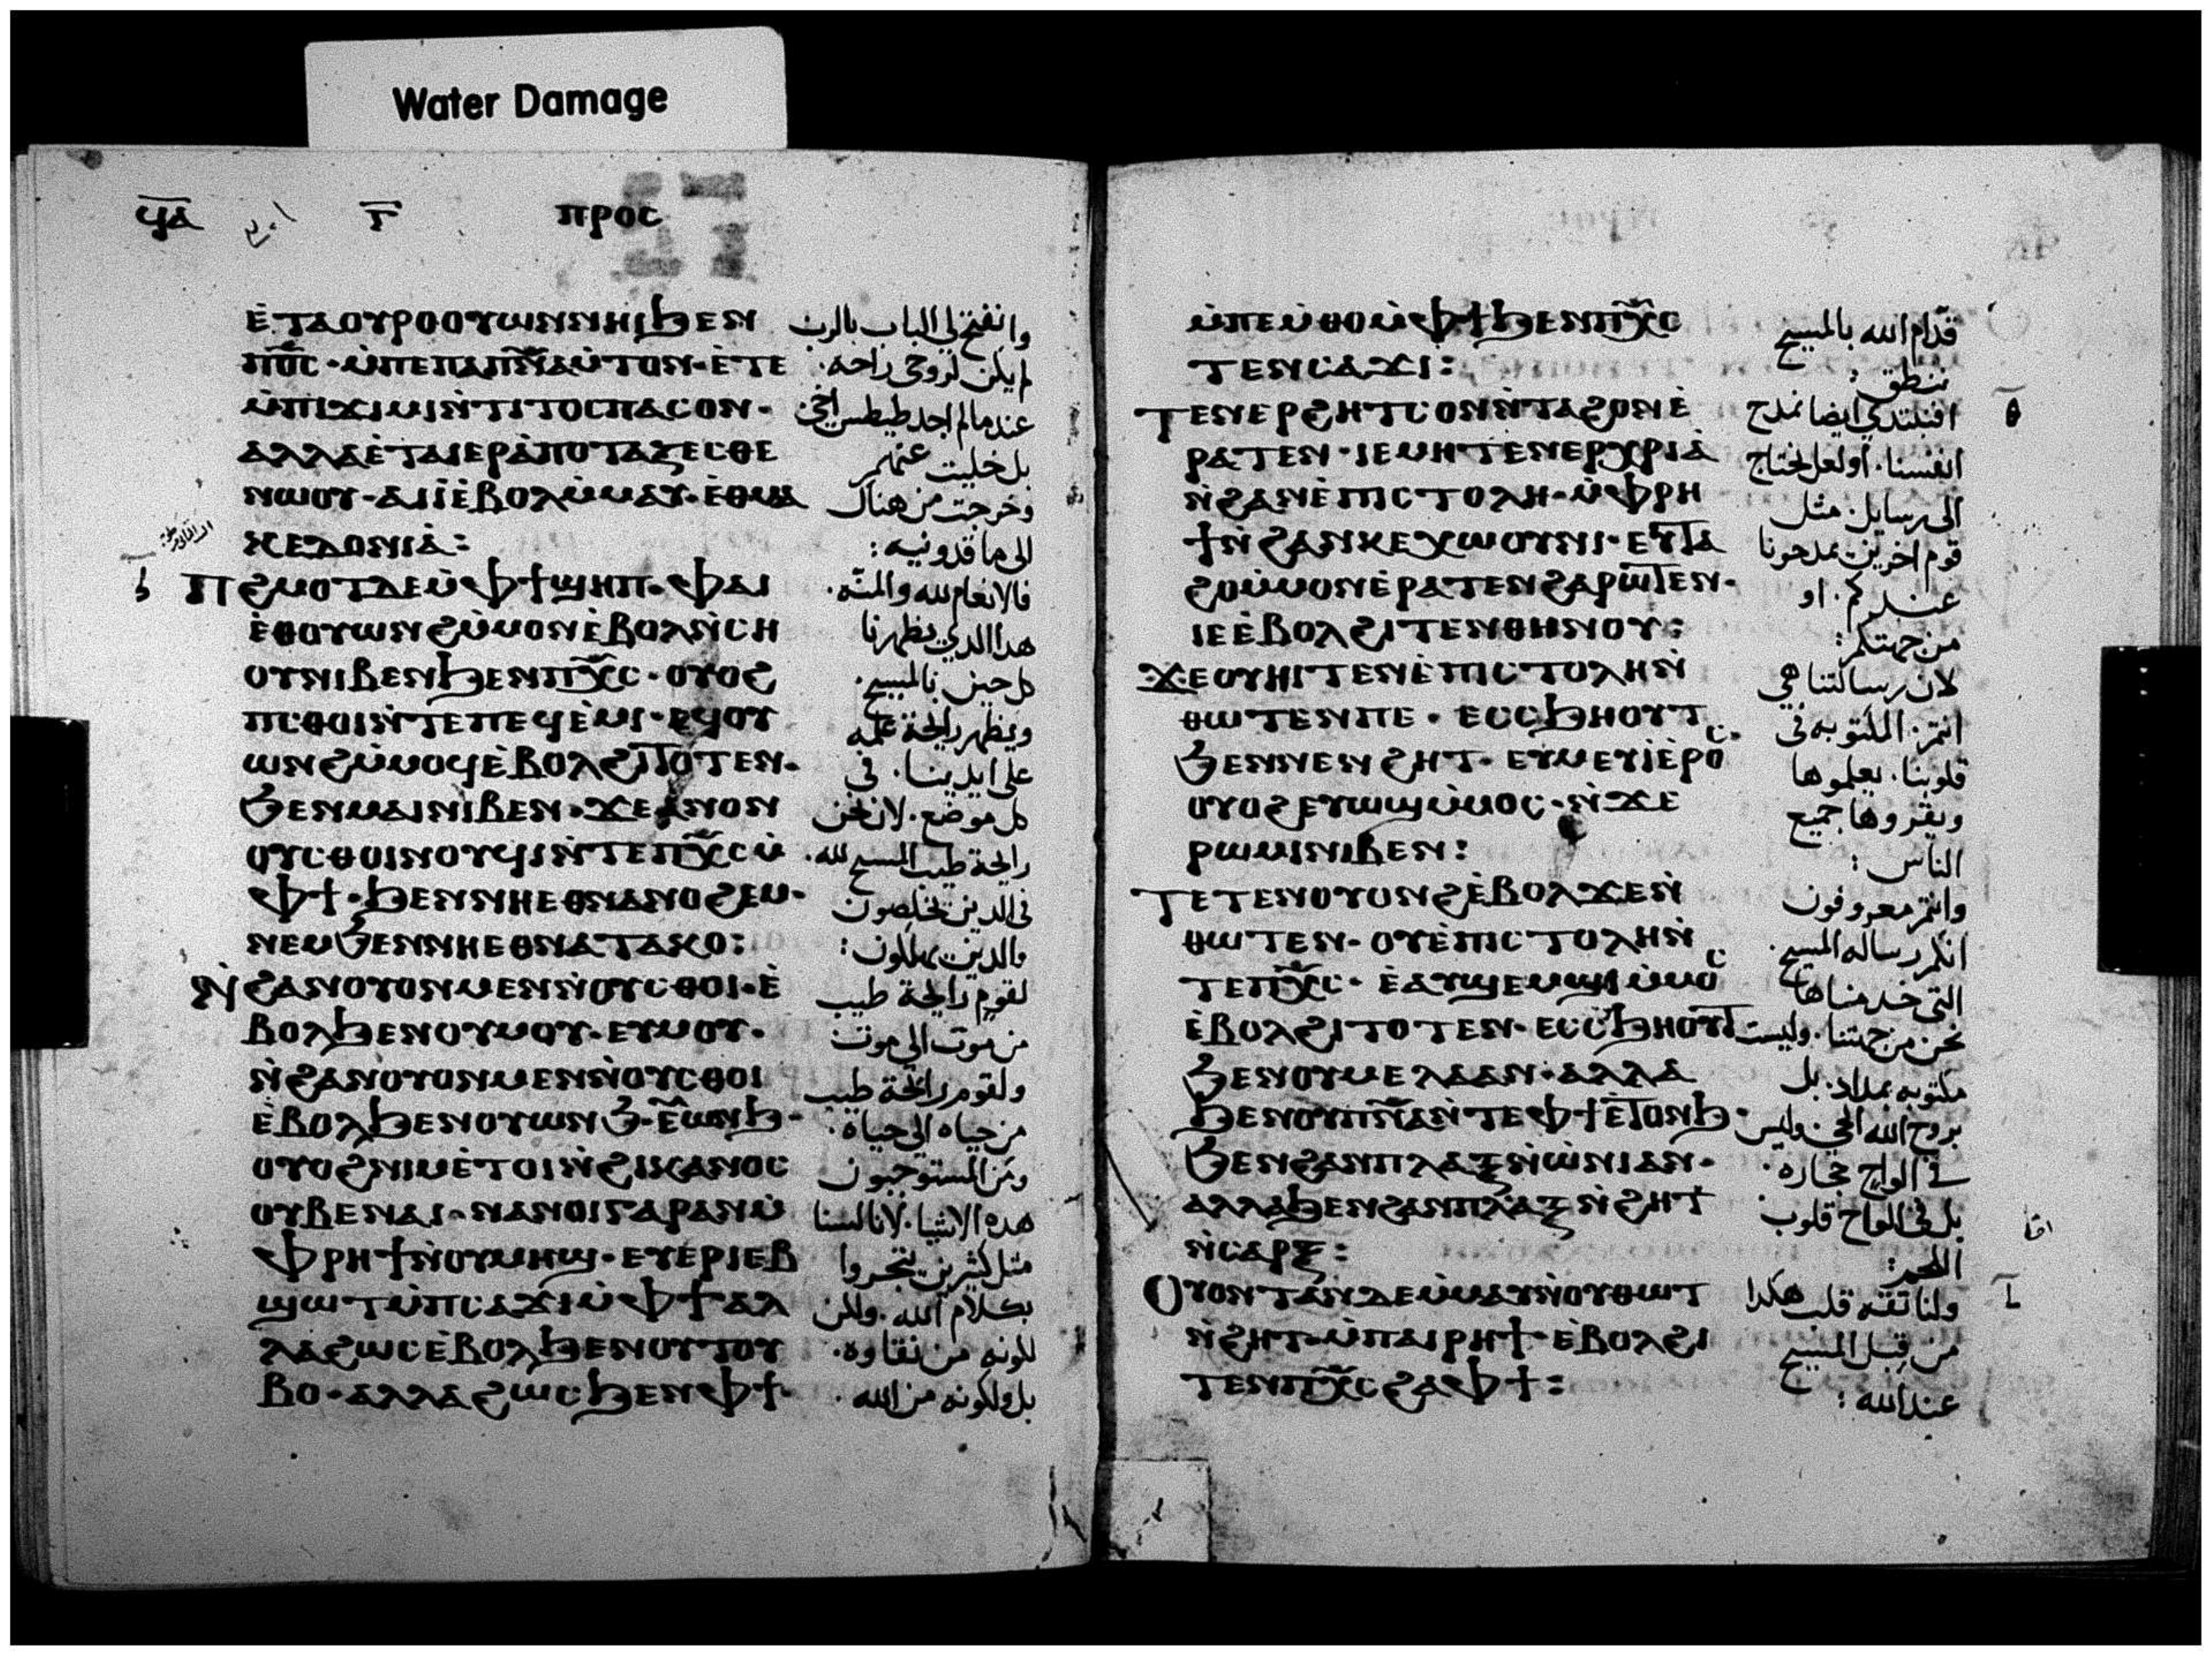 Water Damage
ϥ̅ⲁ̅ ⲅ̅ ⲡⲣⲟⲥ
ⲉ̀ⲧⲁⲟⲩⲣⲟⲟⲩⲱⲛⲛⲏⲓϧⲉⲛ
ⲡⲟ̅ⲥ̅·ⲙ̀ⲡⲉⲡⲁⲡⲛ̅ⲁ̅ⲙ̀ⲧⲟⲛ·ⲉ̀ⲧⲉ
ⲙ̀ⲡⲓϫⲓⲙⲓⲛ̀ⲧⲓⲧⲟⲥⲡⲁⲥⲟⲛ·
ⲁⲗⲗⲁⲉ̀ⲧⲁⲓⲉⲣⲁ̀ⲡⲟⲧⲁⲝⲉⲥⲑⲉ
ⲛⲱⲟⲩ·ⲁⲓⲓ̀ⲉ̀ⲃⲟⲗⲙ̀ⲙⲁⲩ·ⲉ̀ⲑⲙⲁ
ⲕⲉⲇⲟⲛⲓⲁ̀:
ⲡϩⲙⲟⲧⲇⲉⲙ̀ⲫϯϣⲏⲡ·ⲫⲁⲓ
ⲉ̀ⲑⲟⲩⲱⲛϩⲙ̀ⲙⲟⲛⲉ̀ⲃⲟⲗⲛ̀ⲥⲏ
ⲟⲩⲛⲓⲃⲉⲛϧⲉⲛⲡⲭ̅ⲥ̅·ⲟⲩⲟϩ
ⲡⲥⲑⲟⲓⲛ̀ⲧⲉⲡⲉϥⲉ̀ⲙⲓ·ⲉϥⲟⲩ
ⲱⲛϩⲙ̀ⲙⲟϥⲉ̀ⲃⲟⲗϩⲓⲧⲟⲧⲉⲛ·
ϧⲉⲛⲙⲁⲓⲛⲓⲃⲉⲛ·ϫⲉⲁⲛⲟⲛ
ⲟⲩⲥⲑⲟⲓⲛⲟⲩϥⲓⲛ̀ⲧⲉⲡⲭ̅ⲥ̅ⲙ̀
ⲫϯ·ϧⲉⲛⲛⲏⲉⲑⲛⲁⲛⲟϩⲉⲙ·
ⲛⲉⲙϧⲉⲛⲛⲏⲉⲑⲛⲁⲧⲁⲕⲟ:
ⲛ̀ϩⲁⲛⲟⲩⲟⲛⲙⲉⲛⲛ̀ⲟⲩⲥⲑⲟⲓ·ⲉ̀
ⲃⲟⲗϧⲉⲛⲟⲩⲙⲟⲩ·ⲉⲩⲙⲟⲩ·
ⲛ̀ϩⲁⲛⲟⲩⲟⲛⲙⲉⲛⲛ̀ⲟⲩⲥⲑⲟⲓ
ⲉ̀ⲃⲟⲗϧⲉⲛⲟⲩⲱⲛϧ·ⲉ̀ⲱⲛϧ·
ⲟⲩⲟϩⲛⲓⲙⲉ̀ⲧⲟⲓⲛ̀ϩⲓⲕⲁⲛⲟⲥ
ⲟⲩⲃⲉⲛⲁⲓ·ⲛⲁⲛⲟⲓⲅⲁⲣⲁⲛⲙ̀
ⲫⲣⲏϯⲛ̀ⲟⲩⲙⲏϣ·ⲉⲩⲉⲣⲓⲉⲃ
ϣⲱⲧⲙ̀ⲡⲥⲁϫⲓⲙ̀ⲫϯⲁⲗ
ⲗⲁϩⲱⲥⲉ̀ⲃⲟⲗϧⲉⲛⲟⲩⲧⲟⲩ
ⲃⲟ·ⲁⲗⲗⲁϩⲱⲥϧⲉⲛⲫϯ·
وانفتح لي الباب بالرب
لم يكن لروحي راحه·
عندما لم اجد طيطس اخي
بل خليت عنهم
وخرجت من هناك
الى ماقدونيه:
فالانعام لله والمنه·
هدا الدي يظهرنا
كل حين بالمسيح·
ويظهر رايحة علمه
على ايدينا· في
كل موضع· لان نحن
رايحة طيب المسيح لله·
في الدين يخلصون
والدين يهلكون:
لقوم رايحة طيب
من موت الى موت
ولقوم رايحة طيب
من حياه الى حياة·
ومن المستوجبون
هده الاشيا· لانا لسنا
مثل كثيرين يتجروا
بكلام الله· ولكن
لكونه من نقاوه·
بل ولكونه من الله·
ⲙ̀ⲡⲉⲙ̀ⲑⲟⲙ̀ⲫϯϧⲉⲛⲡⲭ̅ⲥ̅
ⲧⲉⲛⲥⲁϫⲓ:
ⲧⲉⲛⲉⲣϩⲏⲧⲥⲟⲛⲛ̀ⲧⲁϩⲟⲛⲉ̀
ⲣⲁⲧⲉⲛ·ⲓⲉⲙⲏⲧⲉⲛⲉⲣⲭⲣⲓⲁ̀
ⲛ̀ϩⲁⲛⲉ̀ⲡⲓⲥⲧⲟⲗⲏ·ⲙ̀ⲫⲣⲏ
ϯⲛ̀ϩⲁⲛⲕⲉⲭⲱⲟⲩⲛⲓ·ⲉⲩⲧⲁ
ϩⲟⲙ̀ⲙⲟⲛⲉ̀ⲣⲁⲧⲉⲛϩⲁⲣⲱⲧⲉⲛ·
ⲓⲉⲉ̀ⲃⲟⲗϩⲓⲧⲉⲛⲑⲏⲛⲟⲩ:
ϫⲉⲟⲩⲏⲓⲧⲉⲛⲉ̀ⲡⲓⲥⲧⲟⲗⲏⲛ̀
ⲑⲱⲧⲉⲛⲡⲉ·ⲉⲥⲥϧⲏⲟⲩⲧ·
ϧⲉⲛⲛⲉⲛϩⲏⲧ·ⲉⲩⲙⲉⲩⲓⲉ̀ⲣⲟⲥ
ⲟⲩⲟϩⲉⲩⲱϣⲙ̀ⲙⲟⲥ·ⲛ̀ϫⲉ
ⲣⲱⲙⲓⲛⲓⲃⲉⲛ:
ⲧⲉⲧⲉⲛⲟⲩⲟⲛϩⲉ̀ⲃⲟⲗϫⲉⲛ̀
ⲑⲱⲧⲉⲛ·ⲟⲩⲉ̀ⲡⲓⲥⲧⲟⲗⲏⲛ̀
ⲧⲉⲡⲭ̅ⲥ̅·ⲉ̀ⲁⲩϣⲉⲙϣⲓⲙ̀ⲙⲟⲥ
ⲉ̀ⲃⲟⲗϩⲓⲧⲟⲧⲉⲛ·ⲉⲥⲥϧⲏⲟⲩⲧ
ϧⲉⲛⲟⲩⲙⲉⲗⲁⲁⲛ·ⲁⲗⲗⲁ
ϧⲉⲛⲟⲩⲡⲛ̅ⲁ̅ⲛ̀ⲧⲉⲫϯⲉ̀ⲧⲟⲛϧ·
ϧⲉⲛϩⲁⲛⲡⲗⲁⲝⲛ̀ⲱ̀ⲛⲓⲁⲛ·
ⲁⲗⲗⲁϧⲉⲛϩⲁⲛⲡⲗⲁⲝⲛ̀ϩⲏⲧ
ⲛ̀ⲥⲁⲣⲝ:
ⲟⲩⲟⲛⲧⲁⲛⲇⲉⲙ̀ⲙⲁⲩⲛ̀ⲟⲩⲑⲱⲧ
ⲛ̀ϩⲏⲧ·ⲙ̀ⲡⲁⲓⲣⲏϯ·ⲉ̀ⲃⲟⲗϩⲓ
ⲧⲉⲛⲡⲭ̅ⲥ̅ϩⲁⲫϯ:
قدّام الله بالمسيح
ننطق:
افنبتدي ايضا نمدح
انفسنا· او لعل نحتاج
الى رسايل· مثل
قوم اخرين يمدحونا
عندكم· او
من جهتكم:
لان رسالتنا هي
انتم· المكتوبه في
قلوبنا· يعلموها
ويقروها جميع
الناس:
وانتم معروفون
انكم رساله المسيح·
التي خدمناها
نحن من جهتنا· وليست
مكتوبه بمداد· بل
بروح الله الحي· وليس
في الواح حجاره·
بل في الواح قلوب
اللحم:
ولنا ثقه قلب هكدا
من قبل المسيح
عند الله: